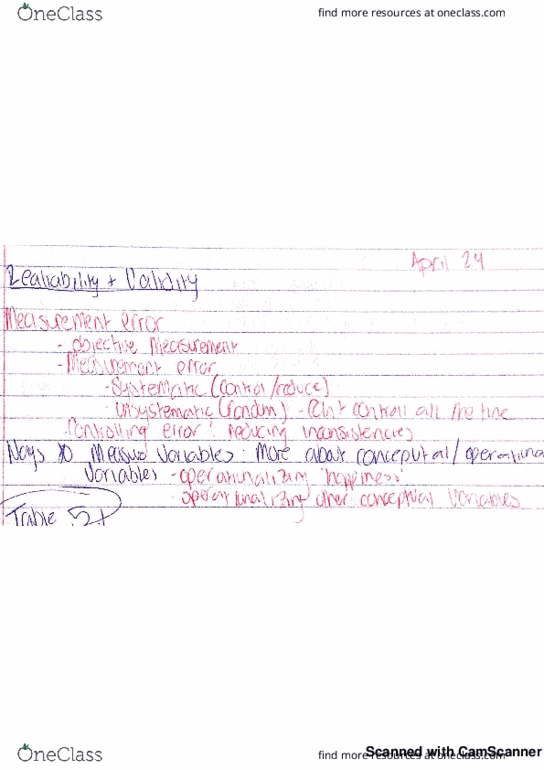 OneClass
find more resources at oneclass.com
April 24
Realiability + Validity
Measurement error
- objective Measurement
- Measurement error
- Systematic (Control/reduce)
- Unsystematic (random) - can't controll all the time
- Controlling error: reducing inconsistencies
Ways to Measure Variables: More about conceptual/operationa
Variables - operationalizing 'happiness'
- operationalizing other conceptual variables
Table 5.2
OneClass
find more resources at oneclass.com
Scanned with CamScanner